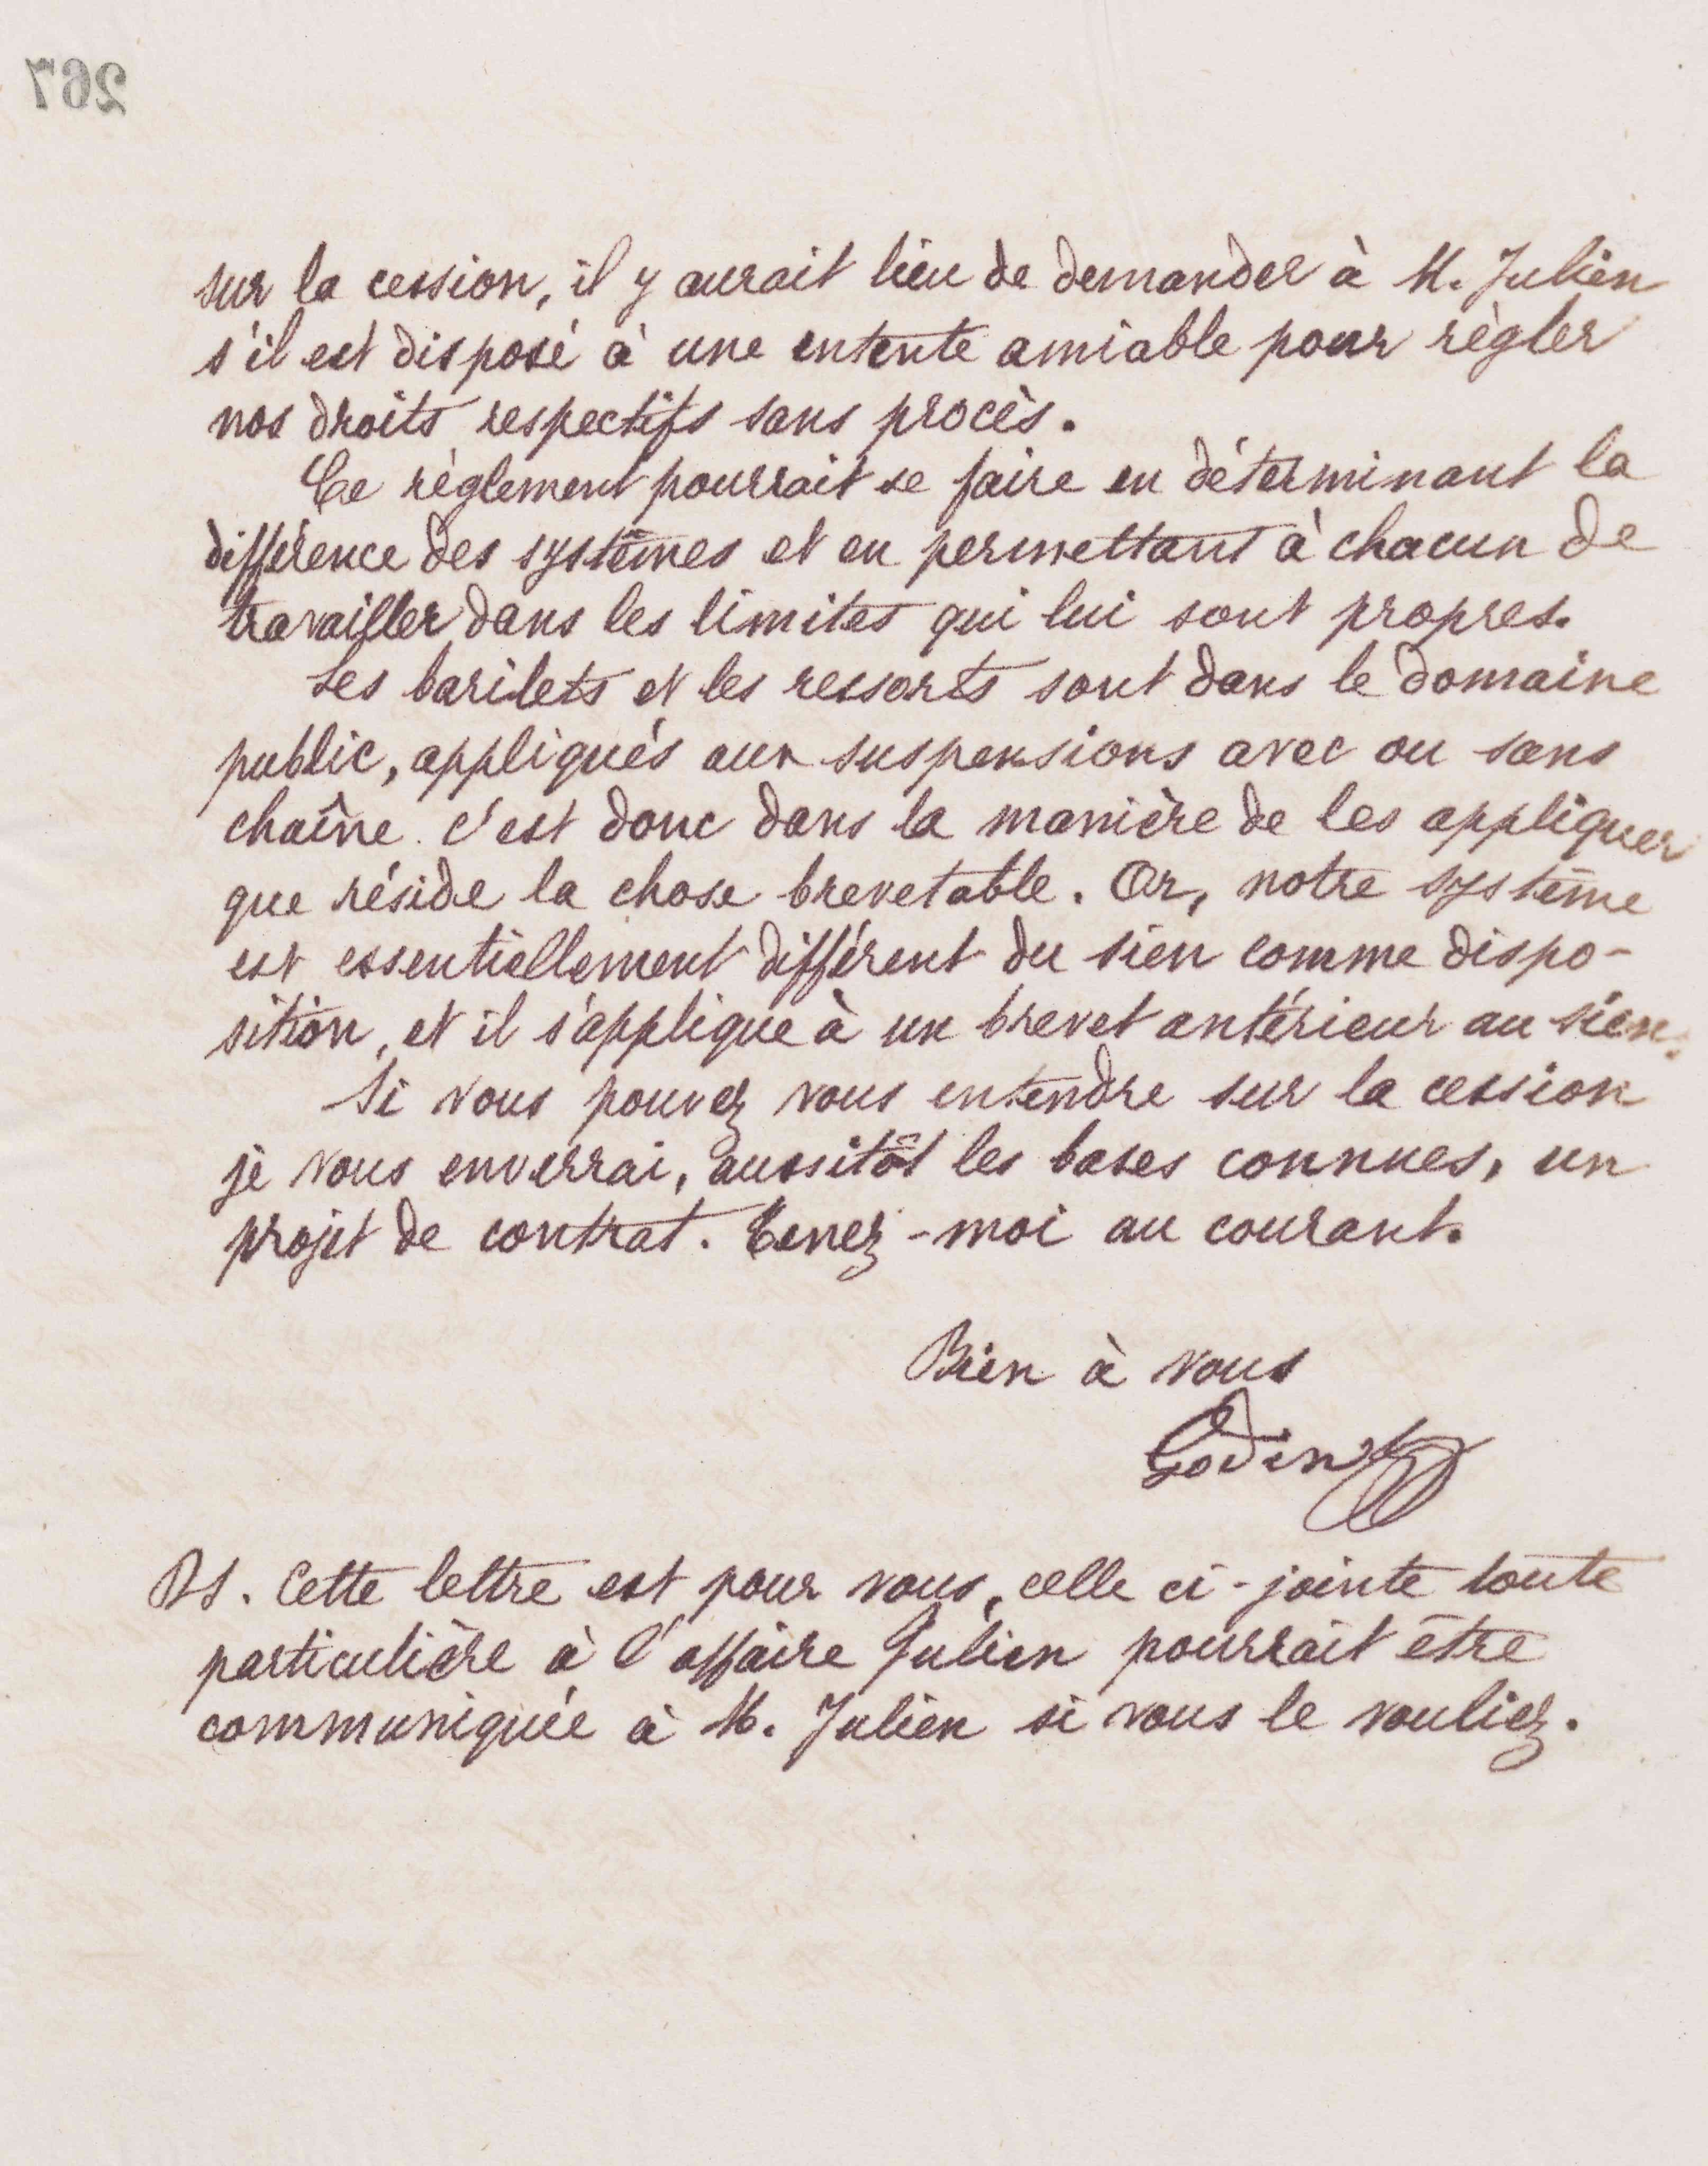 267
sur la cession, il y aurait lieu de demander à M. Julien
s'il est disposé à une entente amiable pour règler
nos droits respectifs sans procès.
Ce règlement pourrait se faire en déterminant la
différence des systèmes et en permettant à chacun de
travailler dans les limites qui lui sont propres.
Les barilets et les ressorts sont dans le domaine
public, appliqués aux suspensions avec ou sans
chaîne. c'est donc dans la manière de les appliquer
que réside la chose brevetable. Or, notre système
est essentiellement différent du sien comme dispo-
sition, et il s'applique à un brevet antérieur au sien.
Si vous pouvez vous entendre sur la cession
je vous enverrai, aussitôt les bases connues, un
projet de contrat. Tenez-moi au courant.
Bien à vous
Godin
PS. Cette lettre est pour vous, celle ci-jointe toute
particulière à l'affaire Julien pourrait être
communiquée à M. Julien si vous le vouliez.